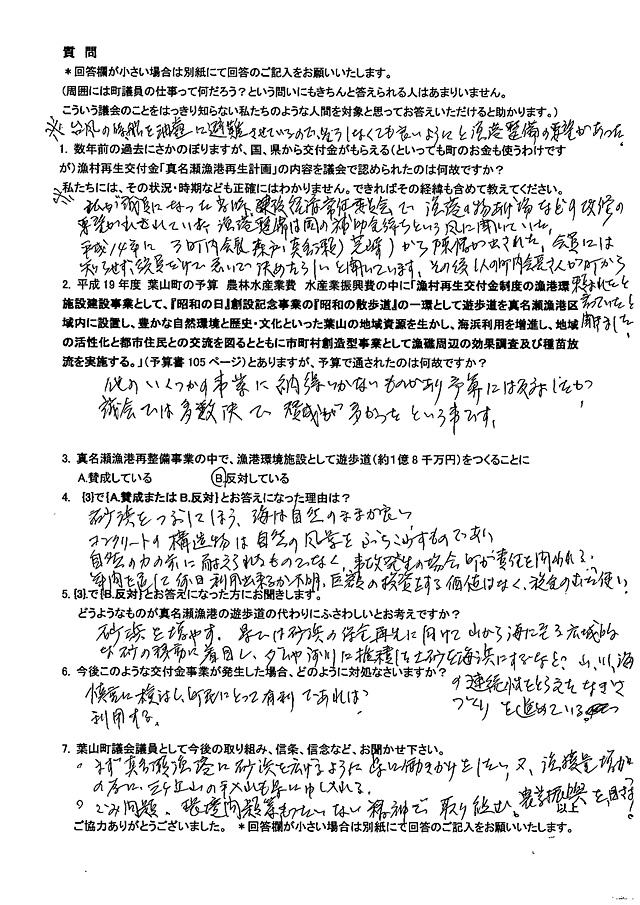 質 問
＊回答欄が小さい場合は別紙にて回答のご記入をお願いいたします。
(周囲には町議員の仕事って何だろう?という問いにもきちんと答えられる人はあまりいません。
こういう議会のことをはっきり知らない私たちのような人間を対象と思ってお答えいただけると助かります。)
※台風の時船を油壷に避難させているので、そうしなくても良いようにと漁港整備の要望があった。
1. 数年前の過去にさかのぼりますが、国、県から交付金がもらえる(といっても町のお金も使うわけです
が)漁村再生交付金「真名瀬漁港再生計画」の内容を議会で認められたのは何故ですか?
私たちには、その状況・時期なども正確にはわかりません。できればその経緯も含めて教えてください。
※私が議員になった当時、建設経済常任委員会で漁港の物あげ場などの改修の
要望が出されていた。漁港整備は国の補助金待ちという風に聞いていた。
平成14年に3町内会長(森戸、真名瀬、芝崎)から陳情が出された。会員には
知らせず、役員だけで急いで決めたらしいと聞いています。その後1人の町内会長さんが町から
頼まれたと言っていたと聞きました。
2. 平成19年度 葉山町の予算 農林水産業費 水産業振興費の中に「漁村再生交付金制度の漁港環境
施設建設事業として、『昭和の日』創設記念事業の『昭和の散歩道』の一環として遊歩道を真名瀬漁港区
域内に設置し、豊かな自然環境と歴史・文化といった葉山の地域資源を生かし、海浜利用を増進し、地域
の活性化と都市住民との交流を図るとともに市町村創造型事業として漁礁周辺の効果調査及び種苗放
流を実施する。」(予算書105ページ)とありますが、予算で通されたのは何故ですか?
他のいくつかの事業に納得いかないものがあり予算には反対したが、
議会では多数決で賛成が多かったという事です。
3. 真名瀬漁港再整備事業の中で、漁港環境施設として遊歩道(約1億8千万円)をつくることに
A.賛成している B.反対している
4. {3}で{A.賛成またはB.反対}とお答えになった理由は?
砂浜をつぶしてしまう、海は自然のままが良い
コンクリートの構造物は自然の風景をぶちこわすものであり
自然の力の前に耐えられるものでなく、事故発生の場合、町が責任を問われる。
年間を通して何日利用出来るか不明、巨額の投資をする価値はなく、税金のむだ使い。
5. {3}で{B.反対}とお答えになった方にお聞きします。
どうようなものが真名瀬漁港の遊歩道の代わりにふさわしいとお考えですか?
砂浜を増やす。県では砂浜の保全再生に向けて山から海に至る広域的
な砂の移動に着目し、ダムや河川に堆積した土砂を海浜にすすなど、山、川、海
の連続性をとらえたなぎさづくりを進めている
6. 今後このような交付金事業が発生した場合、どのように対処なさいますか?
慎重に検討し、町民にとって有利であれば
利用する。
7. 葉山町議会議員として今後の取り組み、信条、信念など、お聞かせ下さい。
。まず真名瀬漁港に砂浜を広げるように県に働きかけをしたい、又、漁獲量増加
の為に、三ヶ丘山の手入れも県に申し入れる。
。ごみ問題、環境問題等もったいない精神で取り組む。農業振興を目指す!
以上
ご協力ありがとうございました。 ＊回答欄が小さい場合は別紙にて回答のご記入をお願いいたします。